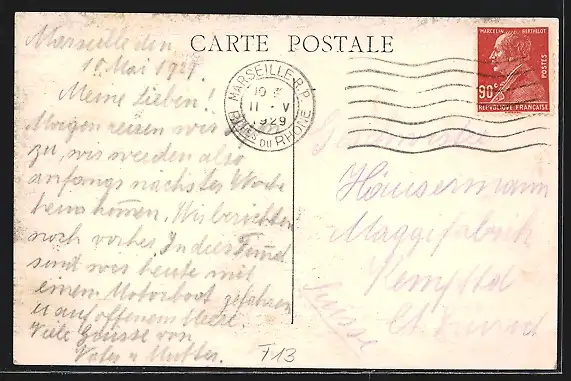 CARTE POSTALE
Marseille den
Mai 1929.
Meine Lieben!
Morgen reisen wir
zu, wir werden also
anfangs nächster Woche
heim kommen. Wir berichten
noch vorher. In dieser
sind wir heute mit
einem Motorboot gefahren
u auf offenem Meere.
Viele Grüsse von
Vater u Mutter.
T13
MARSEILLE R.P.
11 - V
1929
BCHES DU RHÔNE
MARCELIN BERTHELOT
POSTES
90c
RÉPUBLIQUE FRANÇAISE
Häusermann
Maggifabrik
Kemptthal
Ct. Zürich
Suisse